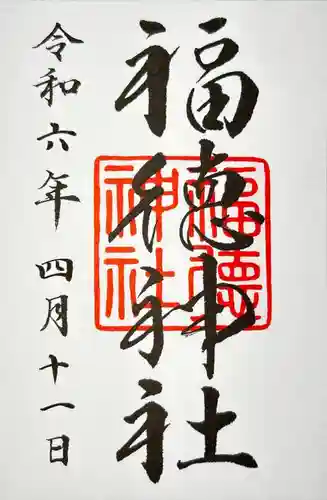 福徳神社
令和六年 四月十一日
福徳神社